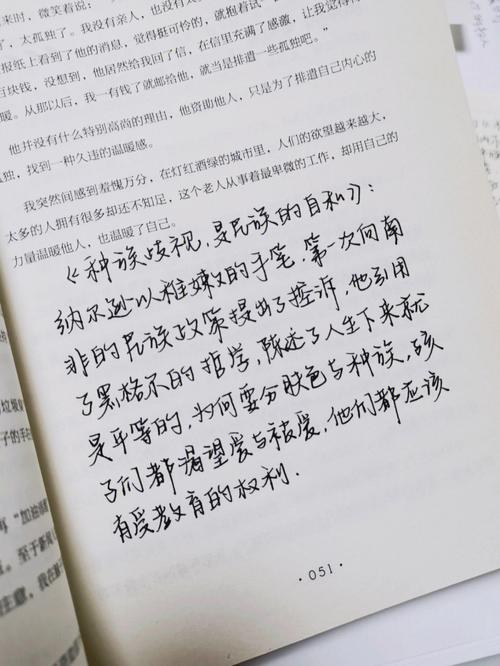 来时，微笑着说：
了，太孤独了。我没有亲人，也没有太
报纸上看到了他的消息，觉得挺可怜的，就抱着试
百块钱，没想到，他居然给我回了信，在信里充满了感激，让我觉得
暖。从那以后，我一有钱了就邮给他，就当是排遣一些孤独吧。”
他并没有什么特别高尚的理由，他资助他人，只是为了排遣自己内心的
独，找到一种久违的温暖感。
我突然间感到羞愧万分，在灯红酒绿的城市里，人们的欲望越来越大，
太多的人拥有很多却还不知足，这个老人从事着最卑微的工作，却用自己的
力量温暖他人，也温暖了自己。
《种族歧视，是民族的自私》：
纳尔逊以稚嫩的手笔，第一次向南
非的民族政策提出了控诉，他引用
了黑格尔的哲学，陈述了人生下来就
是平等的，为何要分肤色与种族，孩
子们都渴望爱与被爱，他们都应该
有受教育的权利.
垃圾
子的手
“加油
至于
我在
·051·